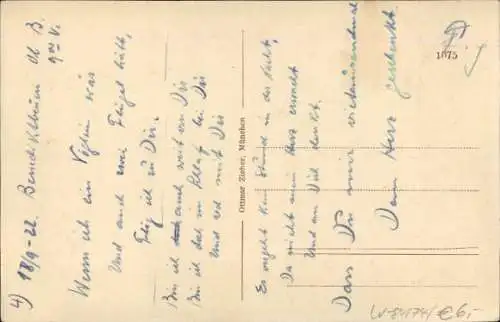 4) 18/9-22. Benediktbeuern Ob. B.
Wenn ich ein Vöglein wär
Und auch zwei Flügel hätt,
Flög ich zu Dir.
Bin ich auch weit von Dir
Bin ich doch im Schlaf bei Dir
Und red mit Dir
Ottmar Zieher, München
Es vergeht kein Stund in der Nacht,
Da nicht mein Herz erwacht
Und an Dich denkt.
Das Du mir vieltausendmal
Dein Herz geschenkt.
1675
€ 6,-